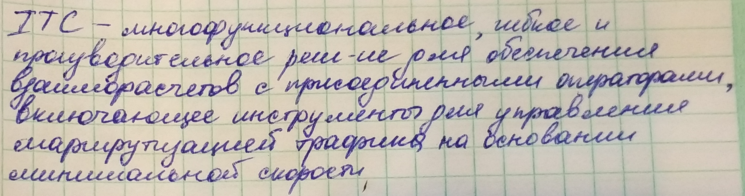 ITC – многофункциональное, гибкое и
производительное реш-ие для обеспечения
взаиморасчетов с присоединенными операторами,
включающее инструменты для управления
маршрутизацией трафика на основании
минимальной скорости